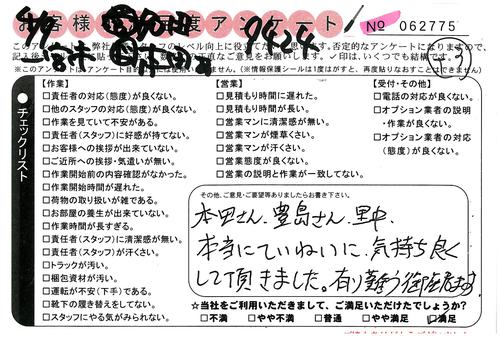 お客様満足度アンケート
No 062775
9424
※このアンケートは
（※情報保護シールは1度はがすと、再度貼りなおすことはできません）
チェックリスト
【作業】
□責任者の対応(態度)が良くない。
□他のスタッフの対応(態度)が良くない。
□作業を見ていて不安がある。
□責任者(スタッフ)に好感が持てない。
□お客様への挨拶が出来ていない。
□ご近所への挨拶・気遣いが無い。
□作業開始前の内容確認がなかった。
□作業開始時間が遅れた。
□荷物の取り扱いが雑である。
□お部屋の養生が出来ていない。
□作業時間が長すぎる。
□責任者(スタッフ)に清潔感が無い。
□責任者(スタッフ)が汗くさい。
□トラックが汚い。
□梱包資材が汚い。
□運転が不安(下手)である。
□靴下の履き替えをしてない。
□スタッフにやる気がみられない。
【営業】
□見積もり時間に遅れた。
□見積もり時間が長い。
□営業マンに清潔感が無い。
□営業マンが煙草くさい。
□営業マンが汗くさい。
□営業態度が良くない。
□営業の説明と作業が一致してない。
【受付・その他】
□電話の対応が良くない。
□オプション業者の説明
・作業が良くない。
□オプション業者の対応
(態度)が良くない。
その他、ご意見・ご要望等ありましたらお書き下さい。
本田さん、豊島さん、里中、
本当にていねいに、気持ち良く
して頂きました。有り難う御座居ます
☆当社をご利用いただきまして、ご満足いただけたでしょうか?
□不満 □やや不満 □普通 □やや満足 □満足